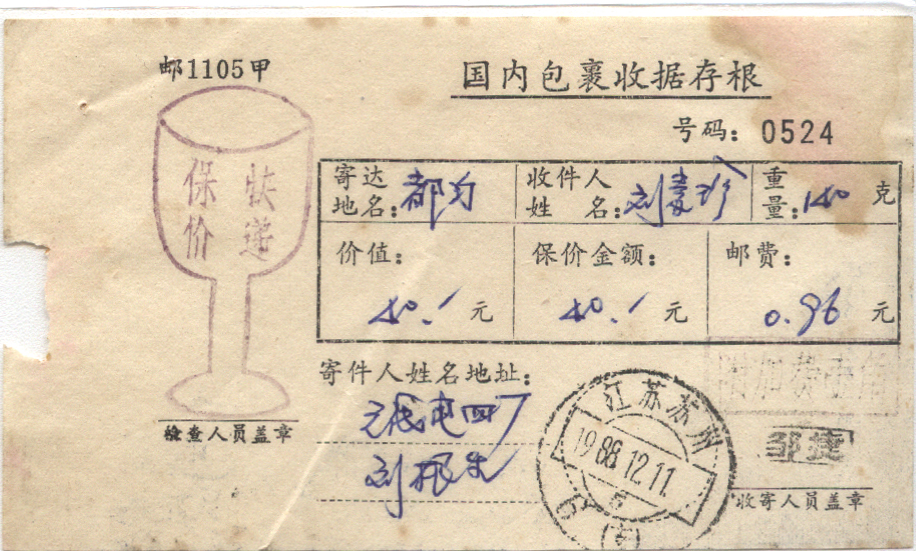 邮1105甲
国内包裹收据存根
号码：0524
保价 快递
寄达地名：都匀
收件人姓名：刘麦珍
重量：140克
价值：40.-元
保价金额：40.-元
邮费：0.96元
寄件人姓名地址：
无线电四厂
刘根生
检查人员盖章
江苏苏州
1988.12.11
收寄人员盖章